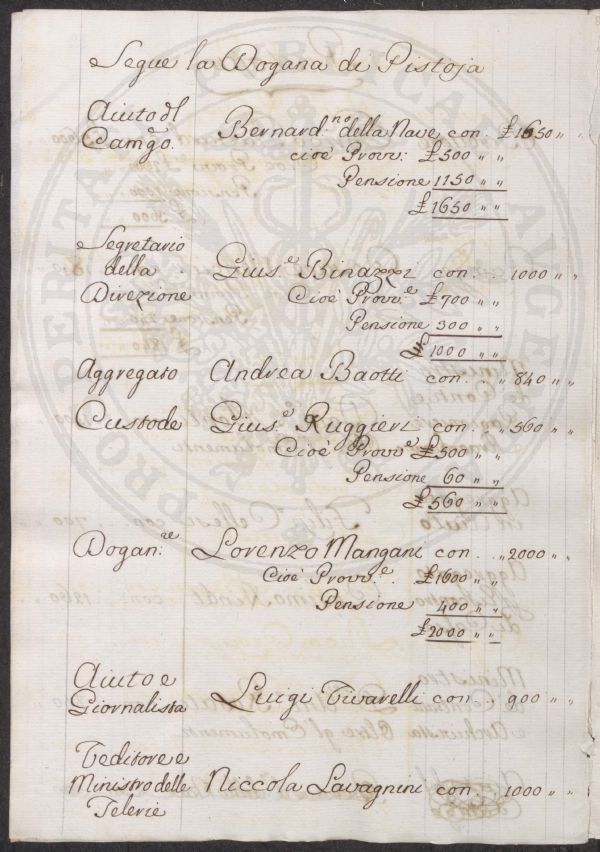 Segue la Dogana di Pistoja
Aiuto dl Bernard.no della Nave con. £ 1650 " "
Camgo. cioè Provv: £ 500 " "
Pensione 1150 " "
£ 1650 " "
Segretario
della Gius.e Binazzi con. . 1000 " "
Direzione Cioè Provv.e £ 700 " "
Pensione 300 " "
£ 1000 " "
Aggregato Andrea Baotti con. . " 840 " "
Custode Gius.e Ruggieri con. " 560 " "
Cioè Provv.e £ 500 " "
Pensione 60 " "
£ 560 " "
Dogan.re Lorenzo Mangani con. . " 2000 " "
Cioè Provv.e £ 1600 " "
Pensione 400 " "
£ 2000 " "
Aiuto e
Giornalista Luigi Tivarelli con. . 900 " "
Teditore e
Ministro delle Niccola Lavagnini con. . 1000 " "
Telerie